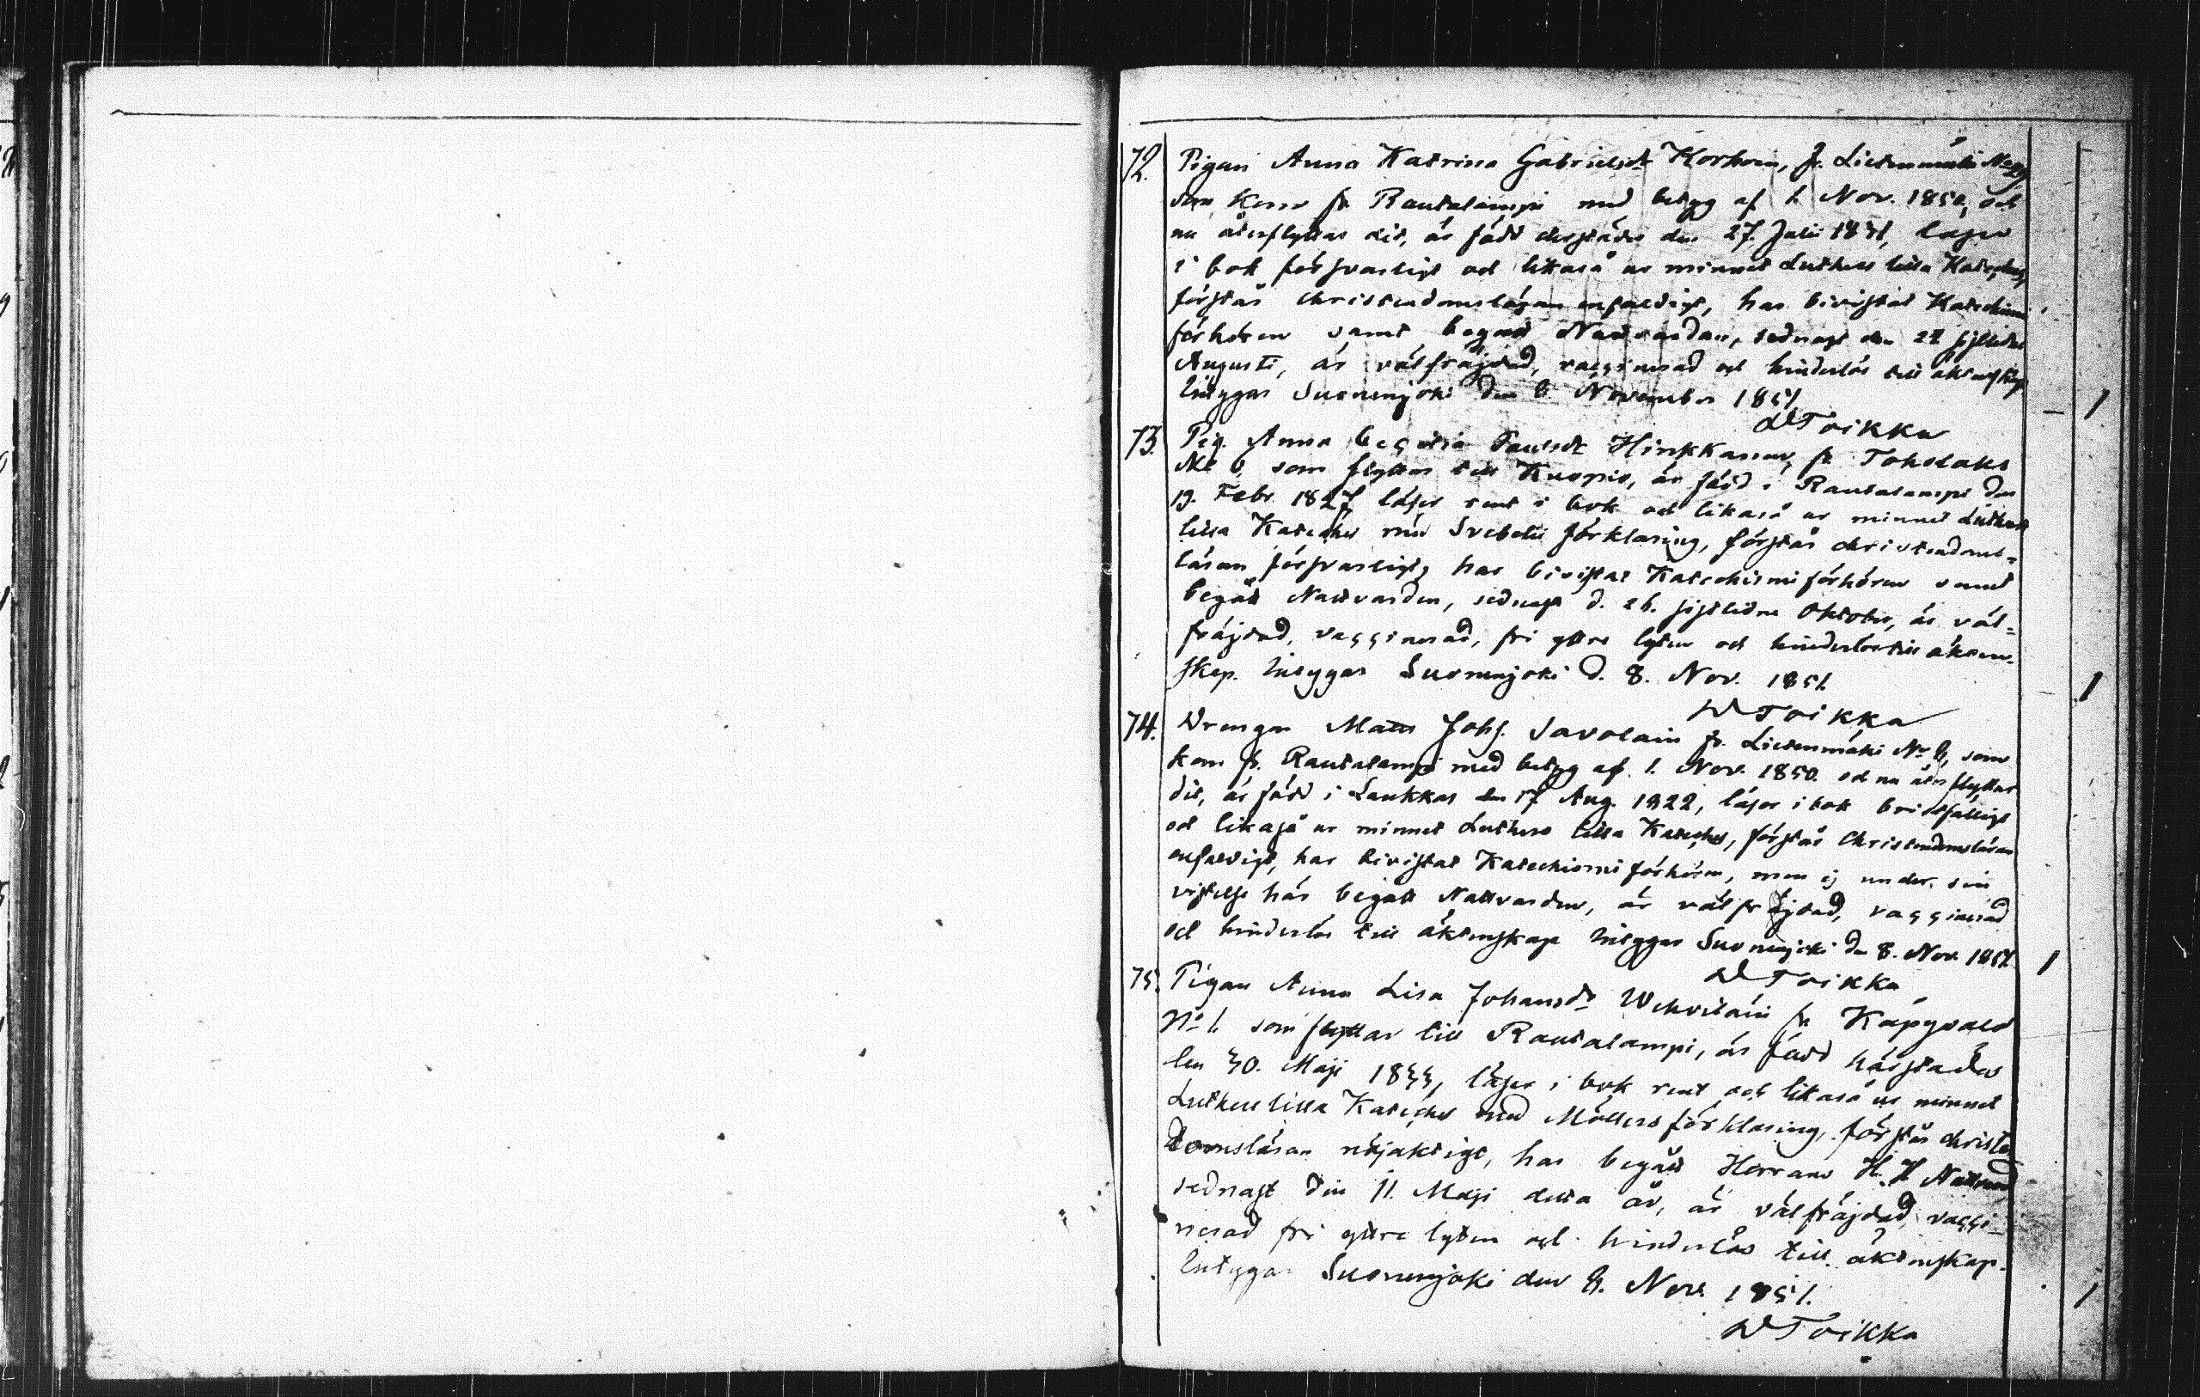 72. Pigan Anna Katrina Gabrielsdr Korhoin, fr. Lietenmäki No
som kom fr Rautalampi med betyg af 1. Nov. 1850, och
nu återflyttar dit, är född derstädes den 27. Juli 1831, läser
i bok försvarligt och likaså ur minnet Lutheri lilla Kateches,
förstår christendomsläran enfaldigt, har bivistat Katechismi
förhören samt begått Nattvarden, sednast den 22 sistledne
Augusti, är välfräjdad, vaccinerad och hinderlös till äktenskap
Intygar Suonenjoki den 8 November 1851
DToikka
73. Pig. Anna Cecilia Paulsdr Hinkkanen, fr Toholaks
No 6, som flyttar till Kuopio, är född i Rautalampi den
19. Febr. 1827 läser rent i bok och likaså ur minnet Lutheri
lilla Kateches med Svebelii förklaring, förstår christendoms=
läran försvarligt, har bivistat Katechismi förhören samt
begått Nattvarden, sednast d. 26. sistledne Oktober, är väl=
fräjdad, vaccinerad, fri yttre lyten och hinderlös till äkten-
skap. Intygar Suonenjoki d. 8. Nov. 1851.
DToikka
74. Drengen Matts Johs. Savolain fr. Lietenmäki No 6, som
kom fr. Rautalampi med betyg af 1. Nov. 1850 och nu återflyttar
dit, är född i Laukkas den 17 Aug. 1822, läser i bok bristfälligt
och likaså ur minnet Lutheri lilla Kateches, förstår Christendomsläran
enfaldigt, har bivistat Katechismi förhören, men ej under sin
vistelse här begått Nattvarden, är välfräjdad, vaccinerad
och hinderlös till äktenskap Intygar Suonenjoki den 8. Nov. 1851.
DToikka
75. Pigan Anna Lisa Johansdr Wehviläin fr Käpysalo
No 1. som flyttar till Rautalampi, är född härstädes
den 30. Maji 1833, läser i bok rent och likaså ur minnet
Lutheri lilla Kateches med Möllers förklaring, förstår christen
domsläran nöjaktigt, har begått Herrans H. H Nattvard
sednast den 11. Maji detta år, är välfräjdad, vacci-
nerad fri yttre lyten och hinderlös till äktenskap.
Intygar Suonenjoki den 8. Nov. 1851.
DToikka